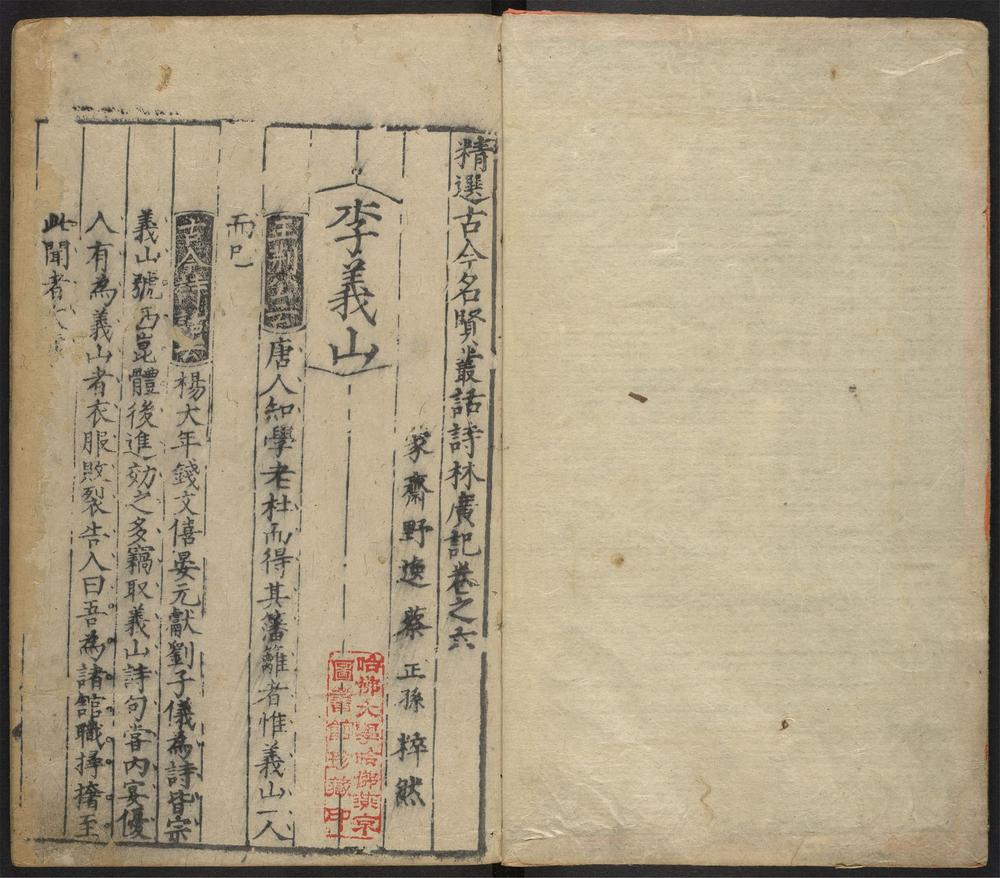 精選古今名賢叢話詩林廣記卷之六
蒙齋野逸蔡正孫粹然
李義山
王荆公云唐人知學老杜而得其藩籬者惟義山一人
而已
古今詩話云楊大年錢文僖晏元獻劉子儀為詩皆宗
義山號西崑體後進効之多竊取義山詩句甞内宴優
人有為義山者衣服敗裂告人曰吾為諸舘職撏撦至
此聞者大
哈佛大學哈佛燕京
圖書館珍藏印